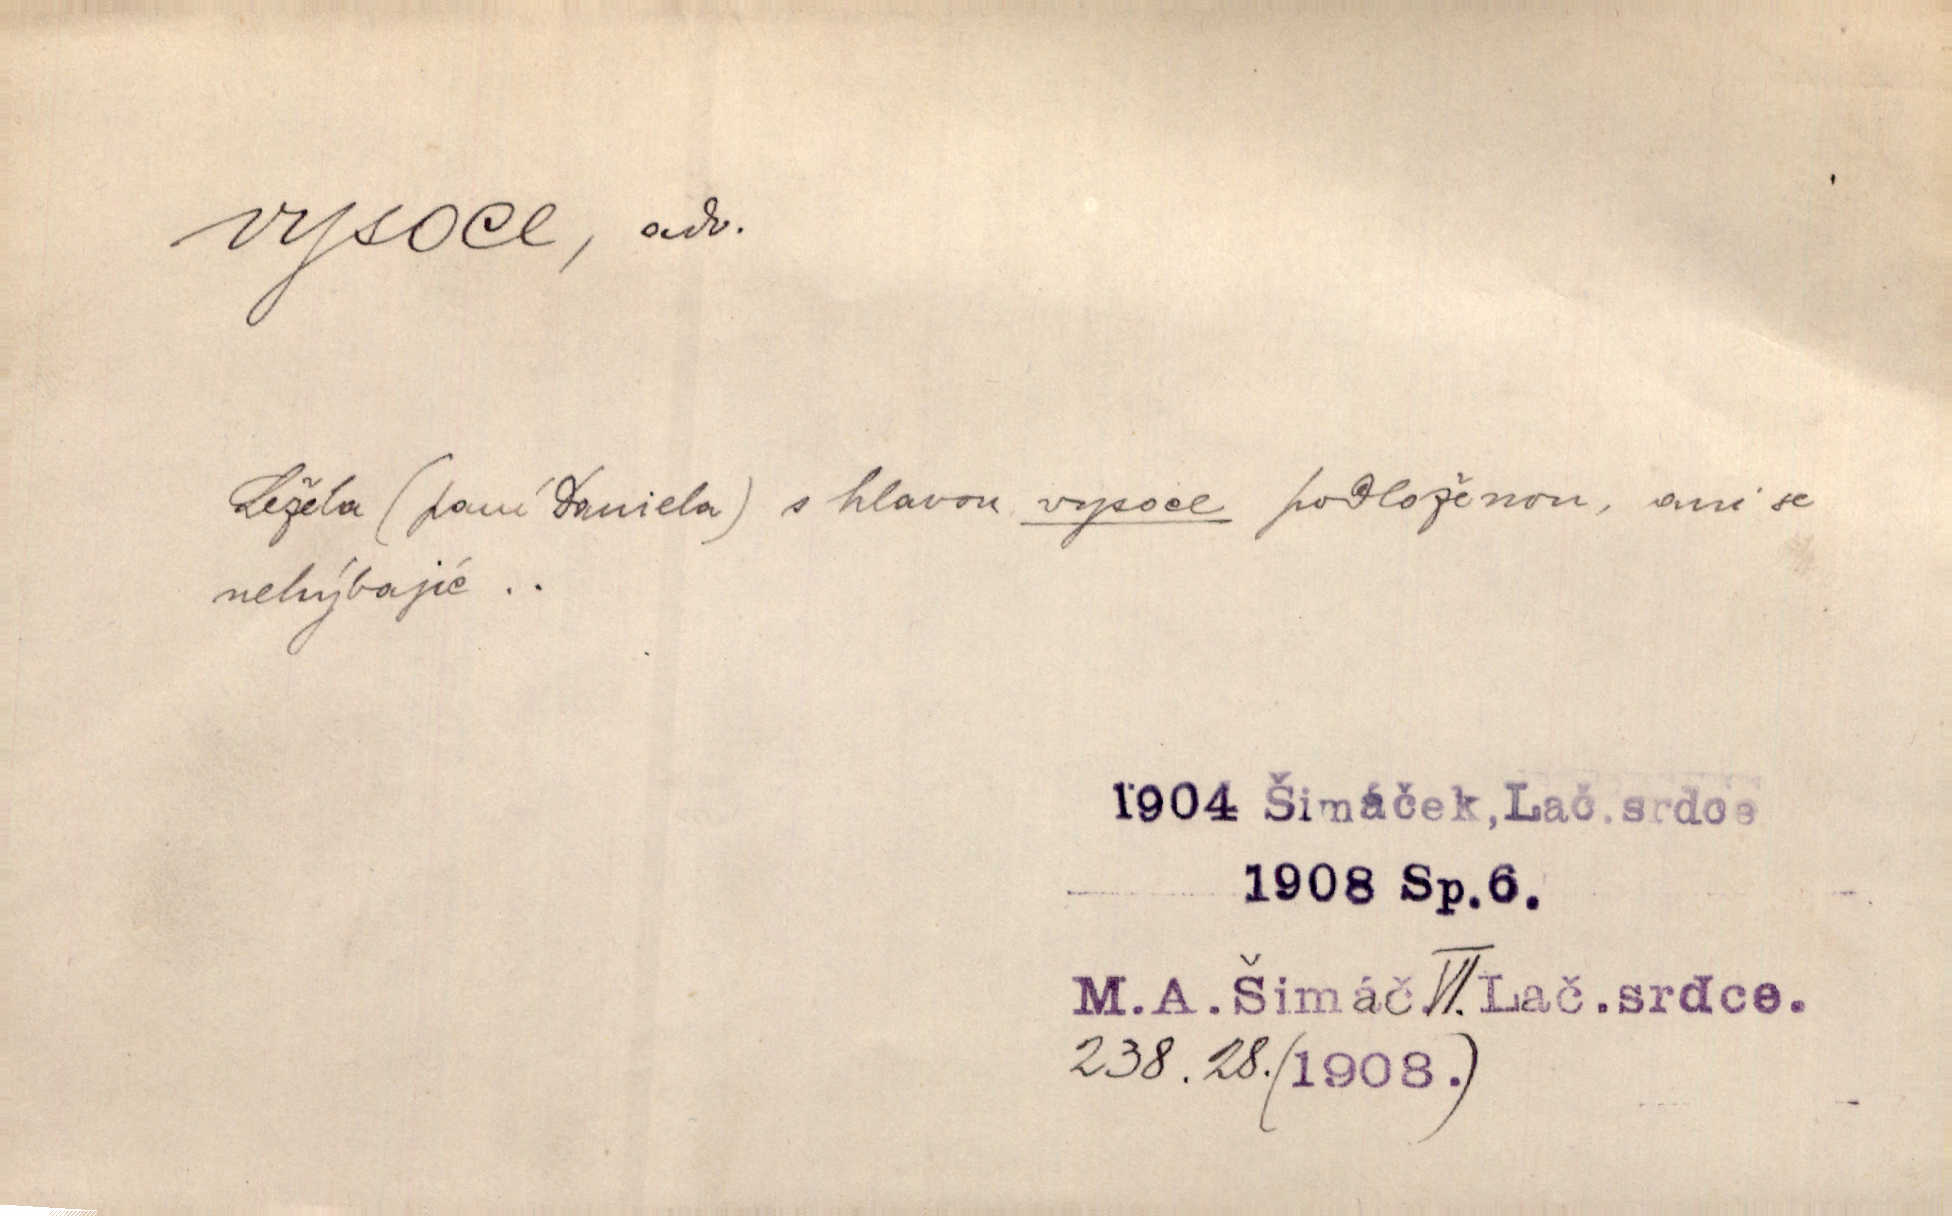 vysoce, adv.
Ležela (paní Daniela) s hlavou vysoce podloženou, ani se
nehýbajíc ..
1904 Šimáček, Lač. srdce
1908 Sp.6.
M.A.Šimáč.VI.Lač.srdce.
238.28.(1908.)